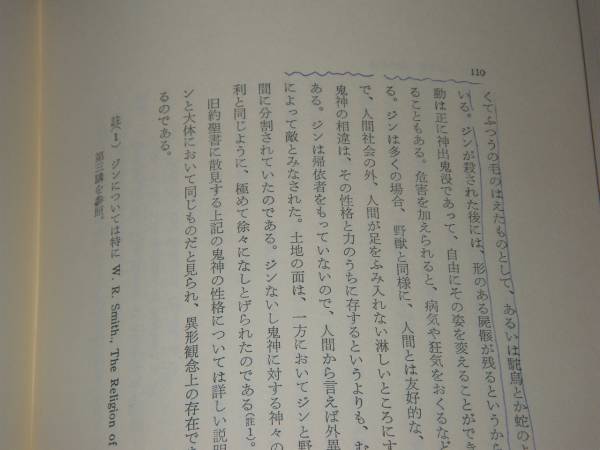 110
くてふつうの毛のはえたものとして、あるいは駝鳥とか蛇のよ
いる。ジンが殺された後には、形のある屍骸が残るというから
動は正に神出鬼没であって、自由にその姿を変えることができ
ることもある。危害を加えられると、病気や狂気をおくるなど
る。ジンは多くの場合、野獣と同様に、人間とは友好的な、
で、人間社会の外、人間が足をふみ入れない淋しいところにす
鬼神の相違は、その性格と力のうちに存するというよりも、む
ある。ジンは帰依者をもっていないので、人間から言えば外異
によって敵とみなされた。土地の面は、一方においてジンと野
間に分割されていたのである。ジンないし鬼神に対する神々の
利と同じように、極めて徐々になしとげられたのである（註1）。
旧約聖書に散見する上記の鬼神の性格については詳しい説明
ンと大体において同じものだと見られ、異形観念上の存在であ
るのである。
註（1） ジンについては特に W. R. Smith., The Religion of
第三講を参照。